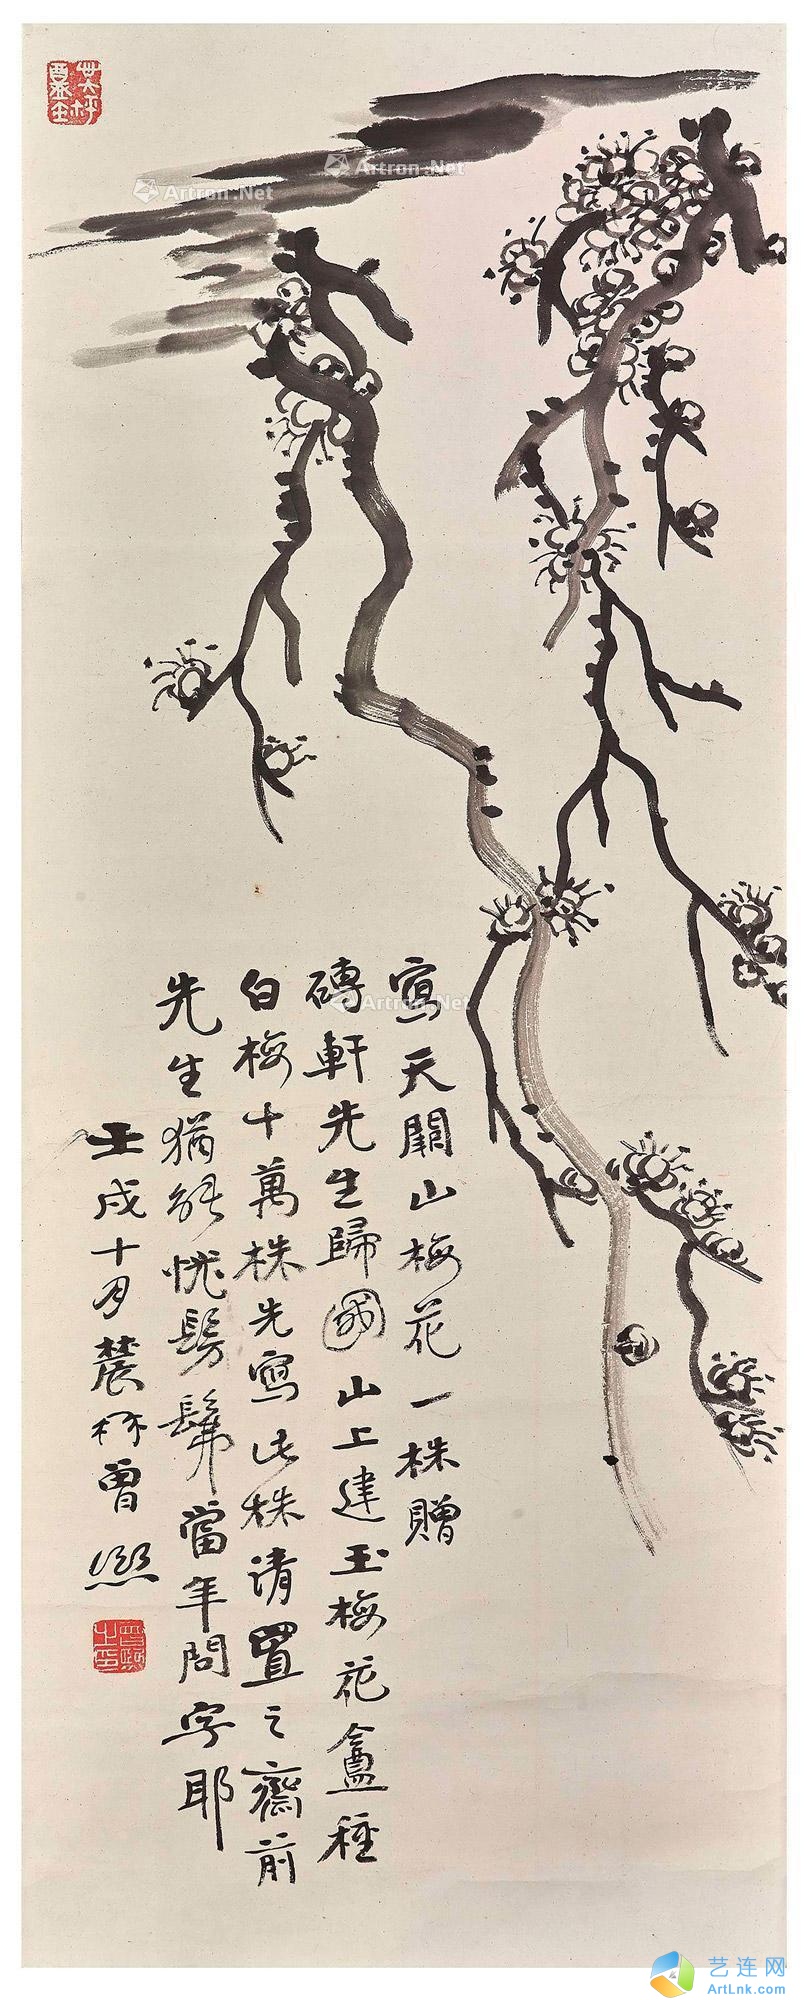 寫天闕山梅花一株贈
磚軒先生歸國山上建玉梅花盦種
白梅十萬株先寫此株請置之齋前
先生猶能恍髣髴當年問字耶
壬戌十月農髯曾熙
曾熙之印
Artron.Net
Artron.Net
Artron.Net
艺连网
ArtLnk.com